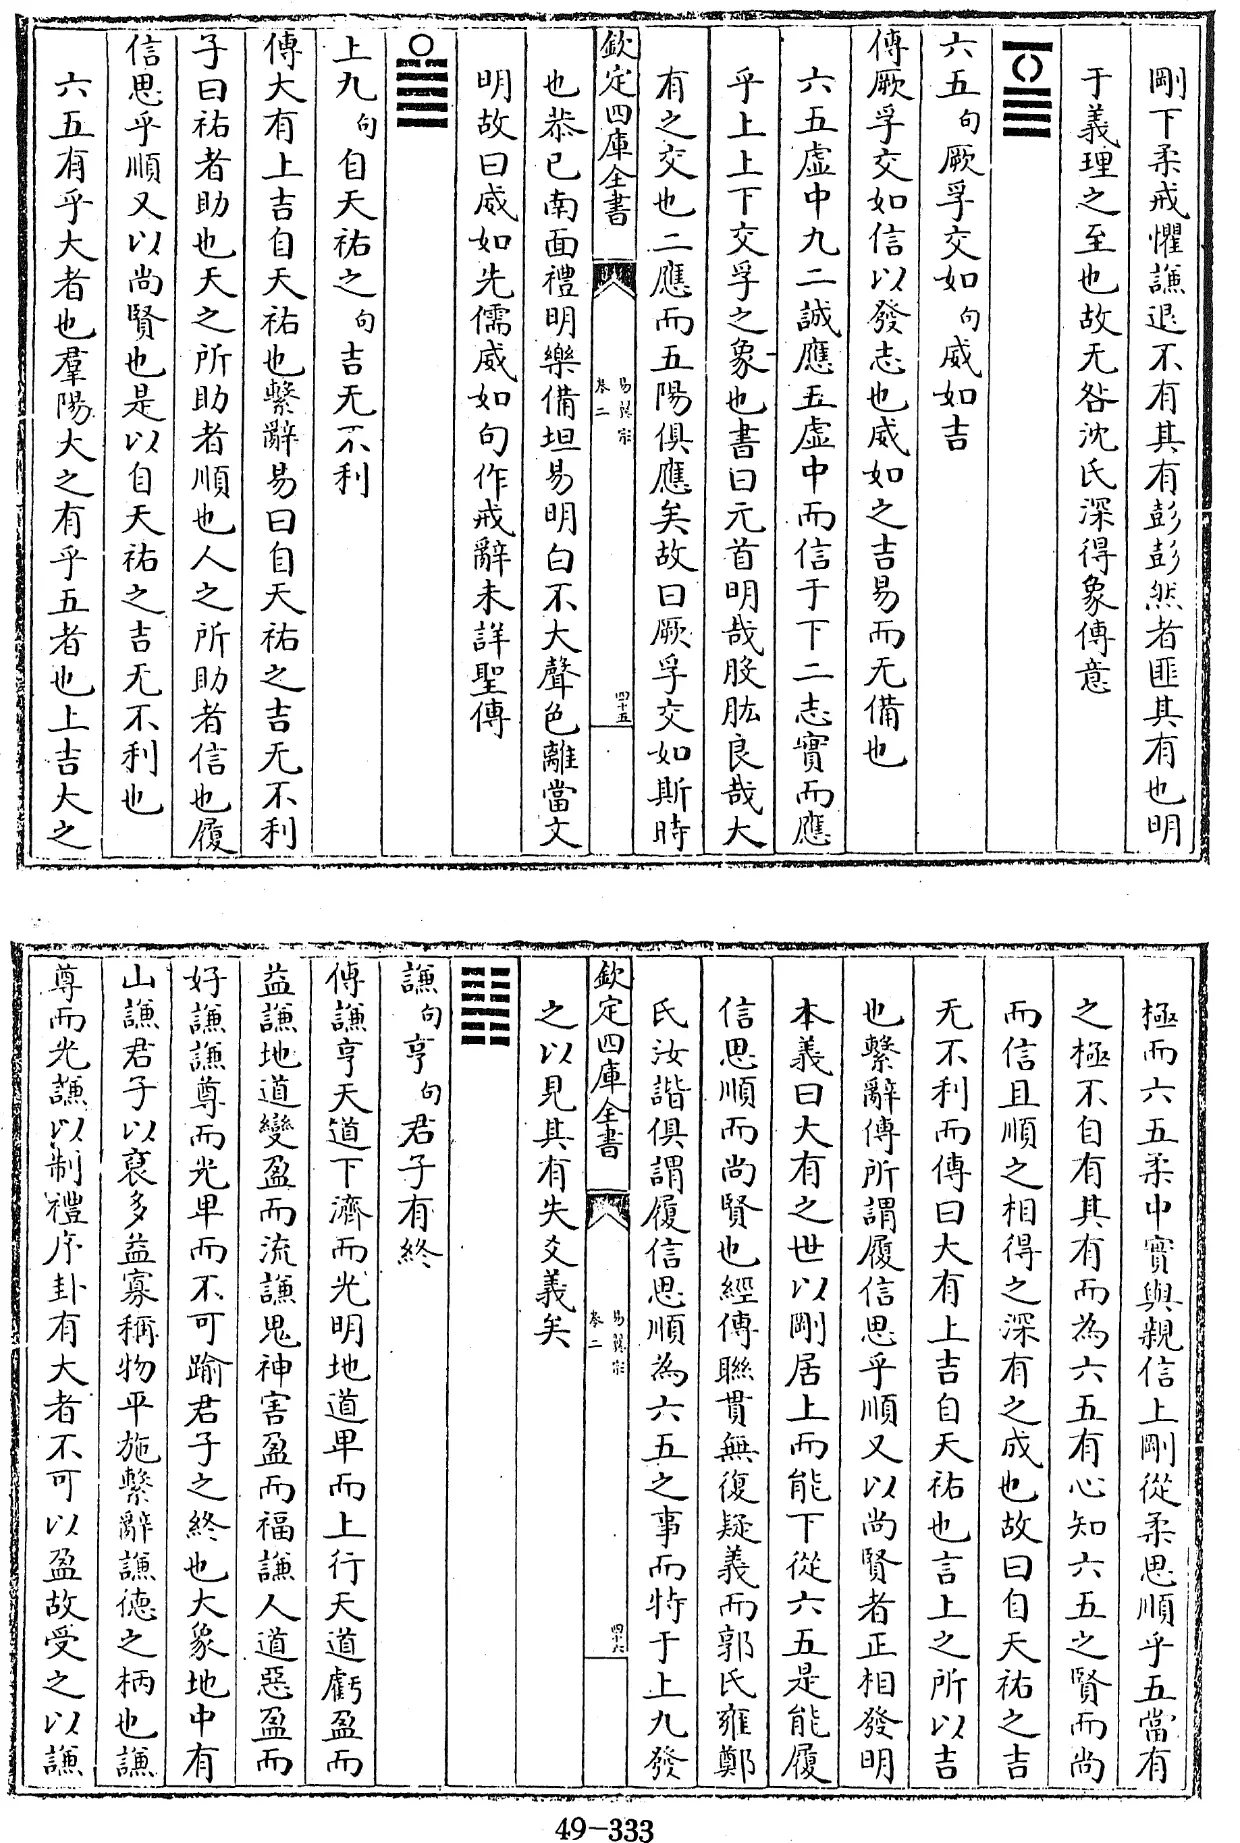 剛下柔戒懼謙退不有其有彭彭然者匪其有也明
于義理之至也故无咎沈氏深得象傳意
六五句厥孚交如句威如吉
傳厥孚交如信以發志也威如之吉易而无備也
六五虛中九二誠應五虛中而信于下二志實而應
乎上上下交孚之象也書曰元首明哉股肱良哉大
有之交也二應而五陽俱應矣故曰厥孚交如斯時
欽定四庫全書
易䕫宗
卷二
四十五
也恭已南面禮明樂備坦易明白不大聲色離當文
明故曰威如先儒威如句作戒辭未詳聖傳
上九句自天祐之句吉无不利
傳大有上吉自天祐也繫辭易曰自天祐之吉无不利
子曰祐者助也天之所助者順也人之所助者信也履
信思乎順又以尚賢也是以自天祐之吉无不利也
六五有乎大者也羣陽大之有乎五者也上吉大之
極而六五柔中實與親信上剛從柔思順乎五當有
之極不自有其有而為六五有心知六五之賢而尚
而信且順之相得之深有之成也故曰自天祐之吉
无不利而傳曰大有上吉自天祐也言上之所以吉
也繫辭傳所謂履信思乎順又以尚賢者正相發明
本義曰大有之世以剛居上而能下從六五是能履
信思順而尚賢也經傳聯貫無復疑義而郭氏雍鄭
氏汝諧俱謂履信思順為六五之事而特于上九發
欽定四庫全書
易䕫宗
卷二
四十六
之以見其有失爻義矣
謙句亨句君子有終
傳謙亨天道下濟而光明地道卑而上行天道虧盈而
益謙地道變盈而流謙鬼神害盈而福謙人道惡盈而
好謙謙尊而光卑而不可踰君子之終也大象地中有
山謙君子以裒多益寡稱物平施繫辭謙德之柄也謙
尊而光謙以制禮序卦有大者不可以盈故受之以謙
49-333